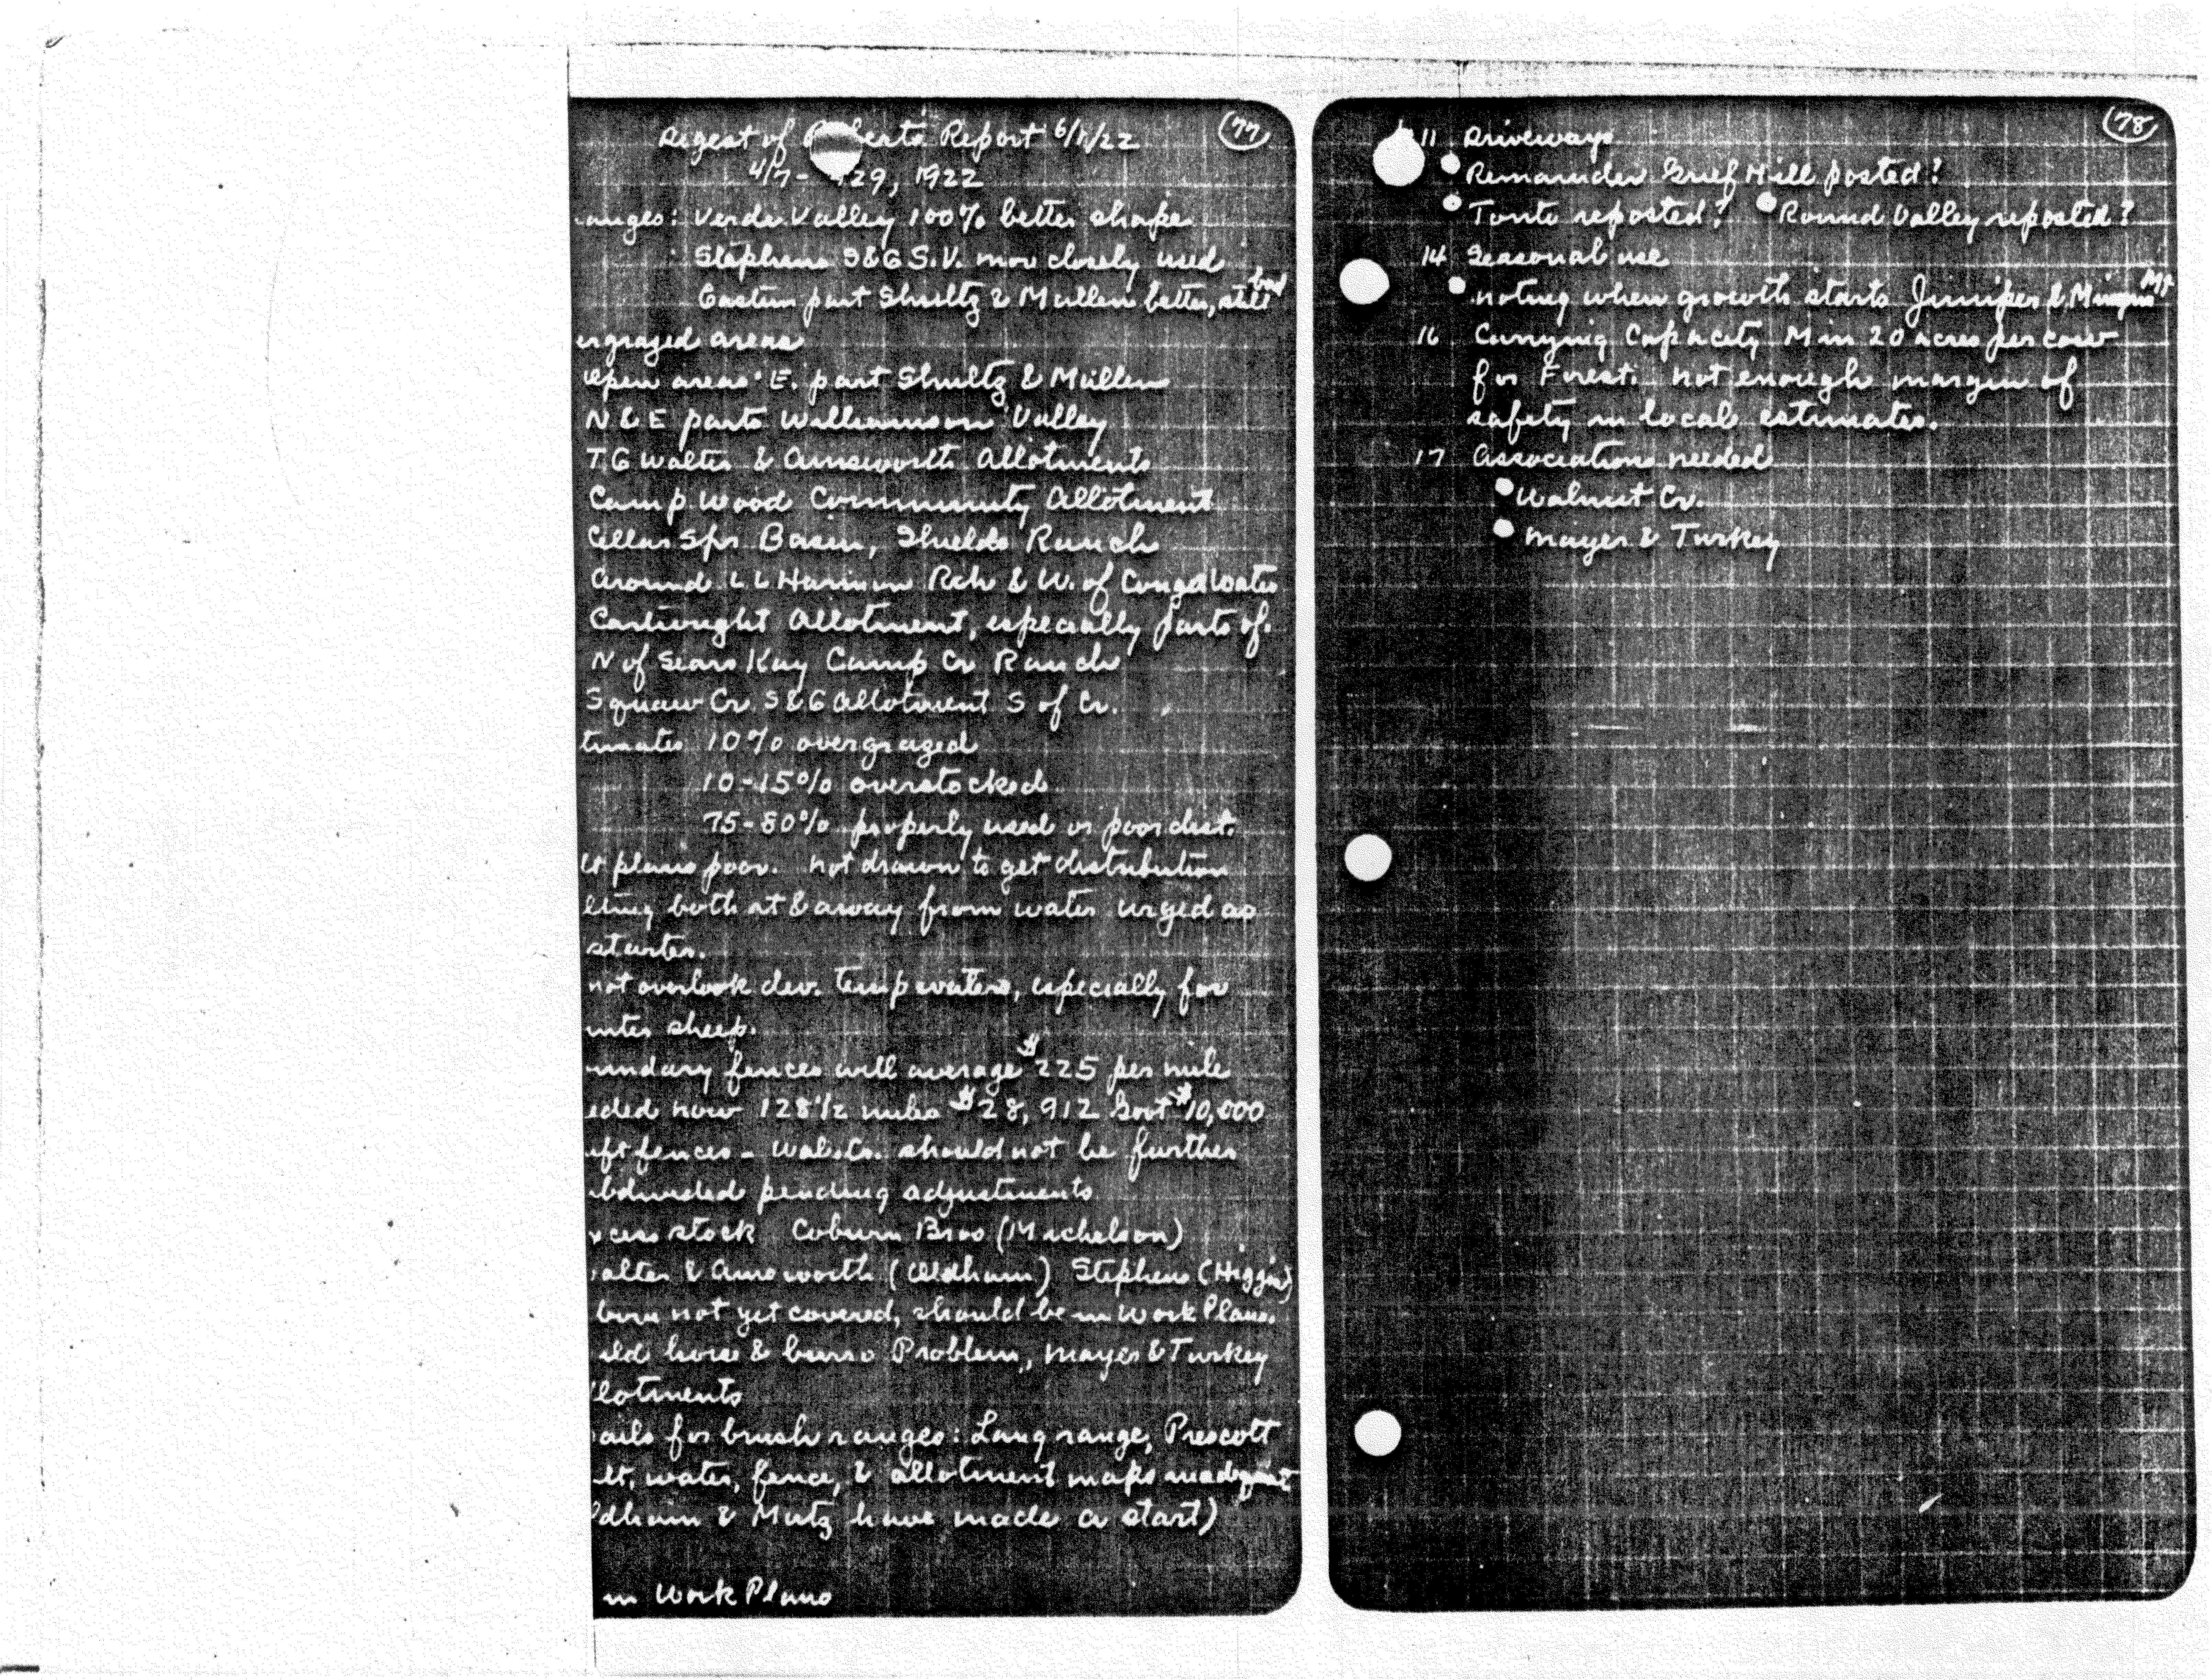 77
Digest of Roberts Report 6/11/22
4/7 - 29, 1922
anges: Verde Valley 100% better shape
Stephens S&G S.V. more closely used
Eastern part Shultz & Mullen better, still bad
ergrazed areas
Open areas E. part Shultz & Mullen
N & E parts Williamson Valley
T G Walter & Ainsworth Allotments
Camp Wood Community Allotment
Cellar Spr. Basin, Shields Ranch
Around L L Harmon Rch & W. of Water
Cartwright Allotment, especially parts of.
N of Sears Kay Camp Cr Ranch
Squaw Cr S&G Allotment S of Cr.
timates 10% overgrazed
10-15% overstocked
75-80% properly used or poor dist.
lt plans poor. Not drawn to get distribution
lting both at & away from water urged as
starter.
not overlook dev. temp waters, especially for
inter sheep.
undary fences will average $225 per mile
eded now 128 1/2 miles $28,912 Govt $10,000
ift fences - Wal. Cr. should not be further
bdivided pending adjustments
xcess stock Coburn Bros (Michelson)
alter & Ainsworth (Oldham) Stephens (Higgins)
burn not yet covered, should be in Work Plans.
ild horse & burro Problem, Mayer & Turkey
llotments
ails for brush ranges: Lang range, Prescott
lt, water, fence, & allotment maps inadequate
ldham & Mutz have made a start)
in Work Plans
78
11 Driveways
Remainder Grief Hill posted?
Tonto reposted? Round Valley reposted?
14 Seasonal use
noting when growth starts Juniper & Mingus Mt
16 Carrying Capacity Min 20 acres per cow
for Forest. Not enough margin of
safety in local estimates.
17 Associations needed
Walnut Cr.
Mayer & Turkey